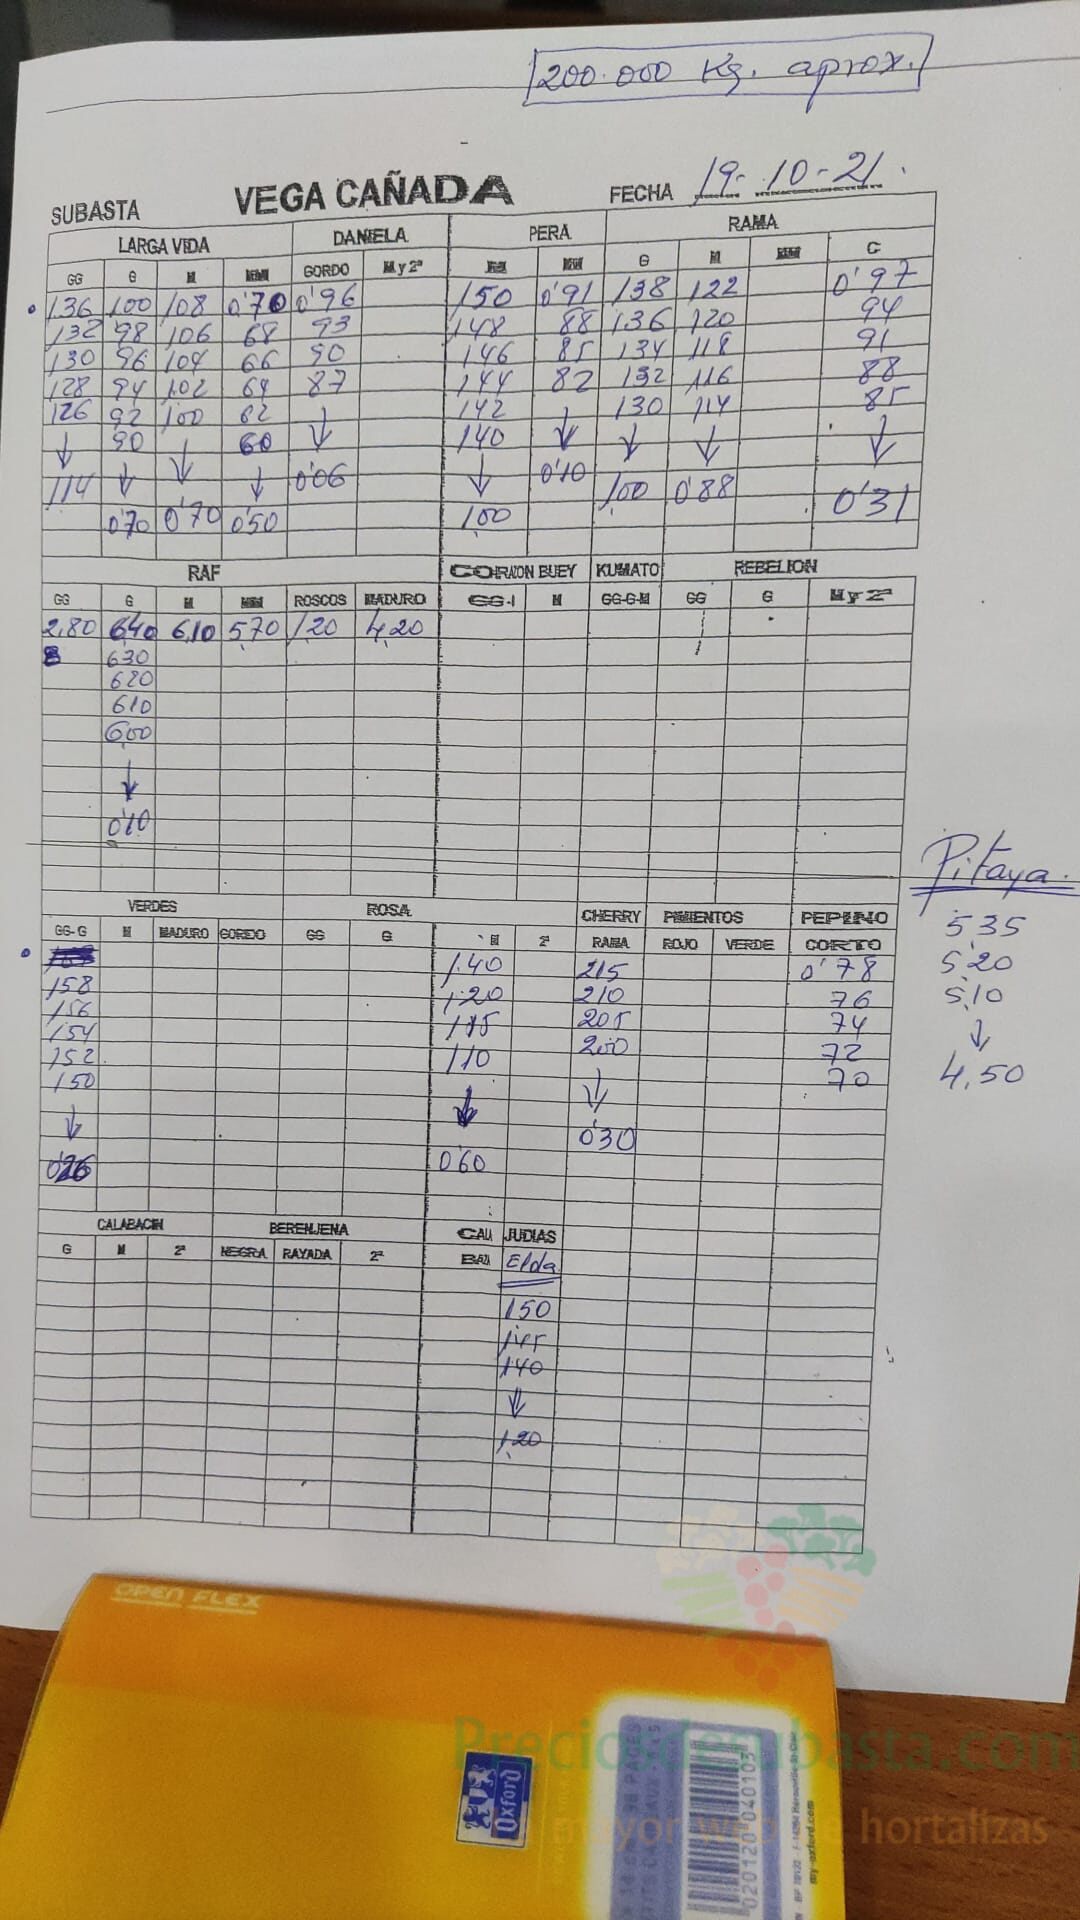 200.000 Kg. aprox.
SUBASTA VEGA CAÑADA FECHA 19-10-21.
LARGA VIDA DANIELA PERA RAMA
GG G M MM GORDO M y 2ª M MM G M MM C
136 100 108 0'70 0'96 150 0'91 138 122 0'97
132 98 106 68 93 148 88 136 120 94
130 96 104 66 90 146 85 134 118 91
128 94 102 64 87 144 82 132 116 88
126 92 100 62 ↓ 142 ↓ 130 114 85
↓ 90 ↓ 60 140 ↓ ↓ ↓
114 ↓ ↓ 0'06 ↓ 0'10 100 0'88 0'31
0'70 0'70 0'50 100
RAF CORAZON BUEY KUMATO REBELION
GG G M MM ROSCOS MADURO GG-I M GG-G-M GG G M y 2ª
2,80 6,40 6,10 5,70 1,20 4,20
630
620
610
600
↓
0'10
Pitaya.
5,35
5,20
5,10
↓
4,50
VERDES ROSA CHERRY PIMIENTOS PEPINO
GG-G M MADURO GORDO GG G M 2ª RAMA ROJO VERDE CORTO
1,40 215 0'78
158 1,20 210 76
156 1,15 205 74
154 1,10 200 72
152 ↓ ↓ 70
150 0'60 0'30
↓
0'26
CALABACIN BERENJENA CALA JUDIAS
G M 2ª NEGRA RAYADA 2ª Elda
150
145
140
↓
1,20
OPEN FLEX
Oxford
020120 040103
my-oxford.com
Preciosdesubasta.com
mayor web de hortalizas